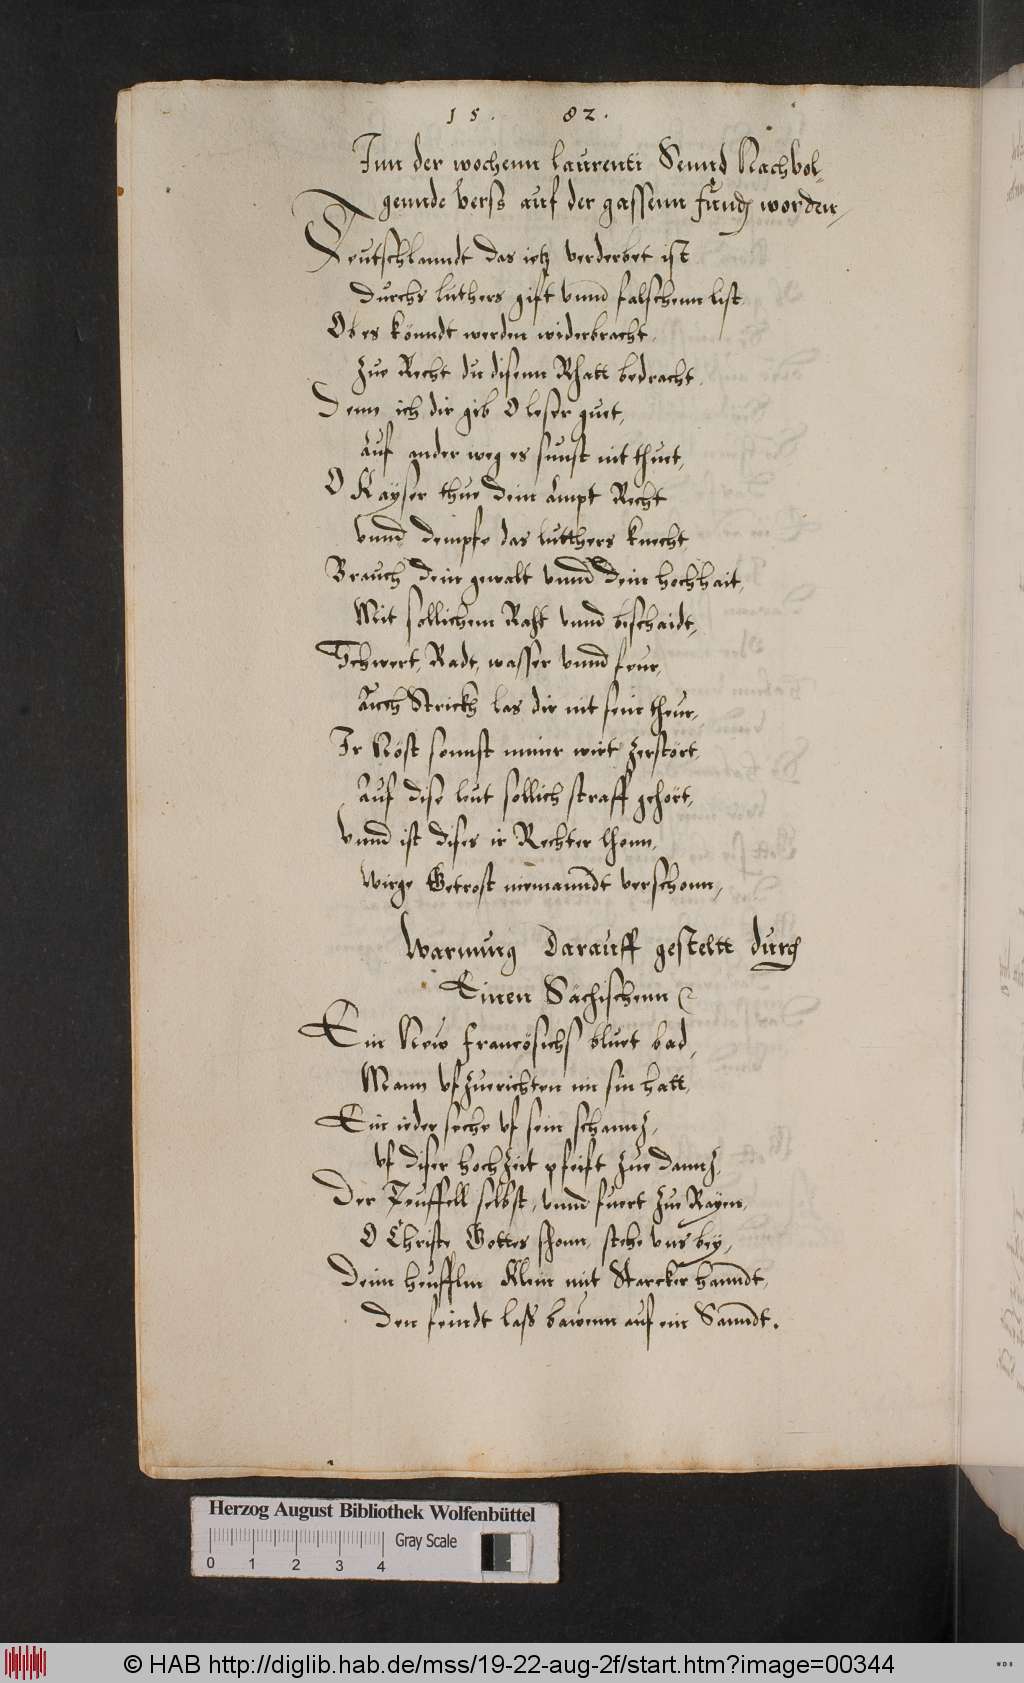 15. 82.
Inn der wochenn laurenti Seind Nachvol-
gennde verss auf der gassenn fundt worden,
Teutschlanndt das ietz verderbet ist
durchs luthers gift vnnd falschenn list
Ob es könndt werden widerbracht,
Zue Recht du disenn Rhatt bedracht,
Denn ich dir gib O leser guet,
Auf ander weg es sunst nit thuet,
O Kayser thue dein Ampt Recht
vnnd dempfe das lutthers knecht
Brauch dein gewalt vnnd dein hochhait,
Mit sollichem Raht vnnd beschaidt,
Schwert, Radt, wasser vnnd feur,
Auch Strickh las dir nit sein theur,
Ir Nöst sonnst nimer wirt zerstört,
Auf dise leut sollich straff gehört,
Vnnd ist dises ir Rechter lhonn,
Wirge Getrost niemanndt verschonn,
Warnung Darauff gesteltt durch
Einen Sächischenn
Ein New französichs bluet bad,
Mann vfzuerichten im sin hatt,
Ein ieder seche vf sein schannz,
vf diser hochzeit pfeift zue dannz,
Der Teuffell selbst, vnnd fuert zue Rayen,
O Christe Gottes shonn, stehe vns bey,
Deim heufflin Klein mit Starcker hanndt,
Den feindt lass bawenn auf ein Sanndt.
Herzog August Bibliothek Wolfenbüttel
0 1 2 3 4 Gray Scale
© HAB http://diglib.hab.de/mss/19-22-aug-2f/start.htm?image=00344